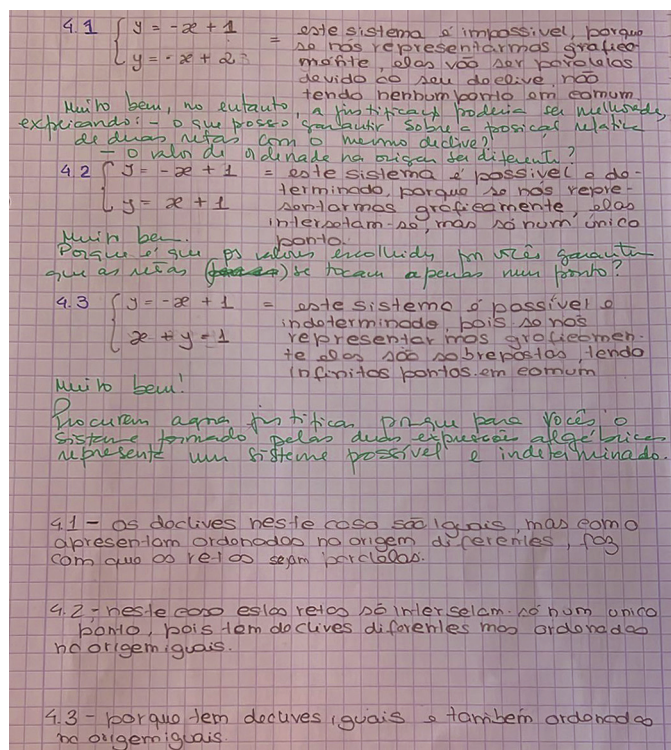 4.1 { y = -x + 1 = este sistema é impossivel, porque
y = -x + 2 se nós representarmos grafica
mente, elas vão ser paralelas
devido ao seu declive, não
tendo nenhum ponto em comum
Muito bem, no entanto, a justificação poderia ser melhorada,
explicando: - o que posso garantir sobre a posição relativa
de duas retas com o mesmo declive?
- o valor de ordenada na origem ser diferente?
4.2 { y = -x + 1 = este sistema é possivel e de-
terminado, porque se nós repre-
y = x + 1 sentarmos graficamente, elas
intersetam-se, mas só num único
ponto.
Muito bem.
Porque é que os valores escolhidos por vocês garantem
que as retas se tocam apenas num ponto?
4.3 { y = -x + 1 = este sistema é possivel e
indeterminado, pois se nós
x + y = 1 representarmos graficamen-
te elas são sobrepostas, tendo
infinitos pontos em comum
Muito bem!
Procurem agora justificar porque para vocês o
sistema formado pelas duas expressões algébricas
representa um sistema possível e indeterminado.
4.1 - os declives neste caso são iguais, mas como
apresentam ordenadas na origem diferentes, faz
com que as retas sejam paralelas.
4.2 - neste caso estas retas só intersetam-se num unico
ponto, pois tem declives diferentes mas ordenadas
na origem iguais.
4.3 - porque tem declives iguais e também ordenadas
na origem iguais.